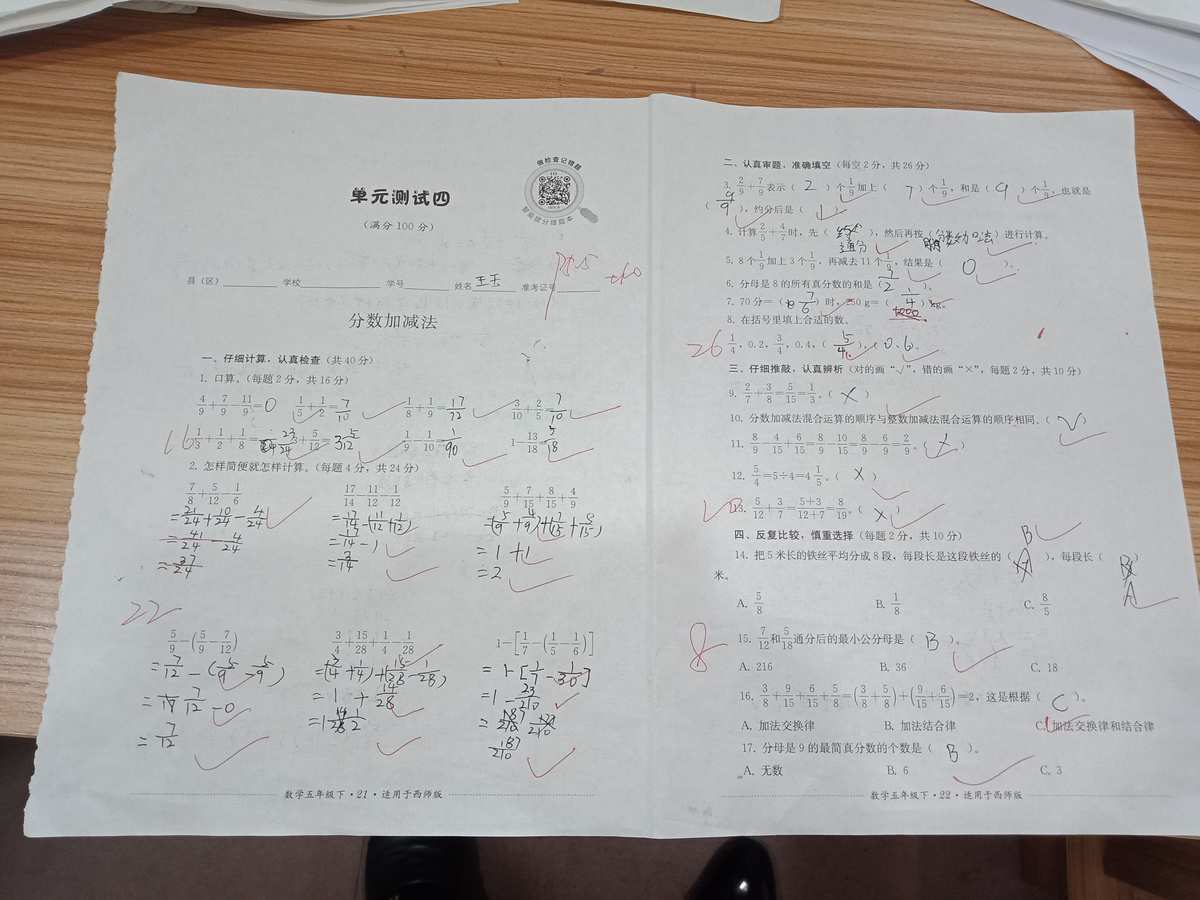 做检查记错题
智能提分错题本
单元测试四
(满分 100 分)
县(区) 学校 学号 姓名 王玉 准考证号
分数加减法
一、仔细计算,认真检查(共 40 分)
1. 口算。(每题 2 分,共 16 分)
4/9+7/9-11/9=0 1/5+1/2=7/10 1/8+1/9=17/72 3/10+2/5=7/10
16
1/3+1/2+1/8=23/24 3+5/12=3 5/12 1/9-1/10=1/90 1-13/18=5/18
2. 怎样简便就怎样计算。(每题 4 分,共 24 分)
7/8+5/12-1/6 17/14-11/12-1/12 5/9+7/15+8/15+4/9
=21/24+10/24-4/24 =17/14-(11/12+1/12) =(5/9+4/9)+(7/15+8/15)
=41/24-4/24 =17/14-1 =1+1
=37/24 =3/14 =2
22
5/9-(5/9-7/12) 3/4+15/28+1/4-1/28 1-[1/7-(1/5-1/6)]
=7/12-(5/9-5/9) =(3/4+1/4)+(15/28-1/28) =1-[1/7-1/30]
=7/12-0 =1+14/28 =1-23/210
=7/12 =1 1/2 =187/210
数学五年级下·21·适用于西师版
二、认真审题,准确填空(每空 2 分,共 26 分)
3. 2/9+7/9表示( 2 )个1/9加上( 7 )个1/9,和是( 9 )个1/9,也就是
( 9/9 ),约分后是( 1 )。
4. 计算2/5+4/7时,先( 通分 ),然后再按(分数加法)进行计算。
5. 8 个1/9加上 3 个1/9,再减去 11 个1/9,结果是( 0 )。
6. 分母是 8 的所有真分数的和是( 7/2 )。
7. 70 分=( 7/6 )时,250 g=( 1/4 )kg。
8. 在括号里填上合适的数。
26
1/4,0.2,3/4,0.4,( 5/4 ),( 0.6 )。
三、仔细推敲,认真辨析(对的画“√”,错的画“×”,每题 2 分,共 10 分)
9. 2/7+3/8=5/15=1/3。( × )
10. 分数加减法混合运算的顺序与整数加减法混合运算的顺序相同。( √ )
11. 8/9-4/9+6/15=8/9-10/15=8/9-6/9=2/9。( × )
12. 5/4=5÷4=4 1/5。( × )
13. 5/12+3/7=5+3/12+7=8/19。( × )
四、反复比较,慎重选择(每题 2 分,共 10 分)
14. 把 5 米长的铁丝平均分成 8 段,每段长是这段铁丝的( B ),每段长( A )
米。
A. 5/8 B. 1/8 C. 8/5
8
15. 7/12和5/18通分后的最小公分母是( B )。
A. 216 B. 36 C. 18
16. 3/8+9/15+6/15+5/8=(3/8+5/8)+(9/15+6/15)=2,这是根据( C )。
A. 加法交换律 B. 加法结合律 C. 加法交换律和结合律
17. 分母是 9 的最简真分数的个数是( B )。
A. 无数 B. 6 C. 3
数学五年级下·22·适用于西师版